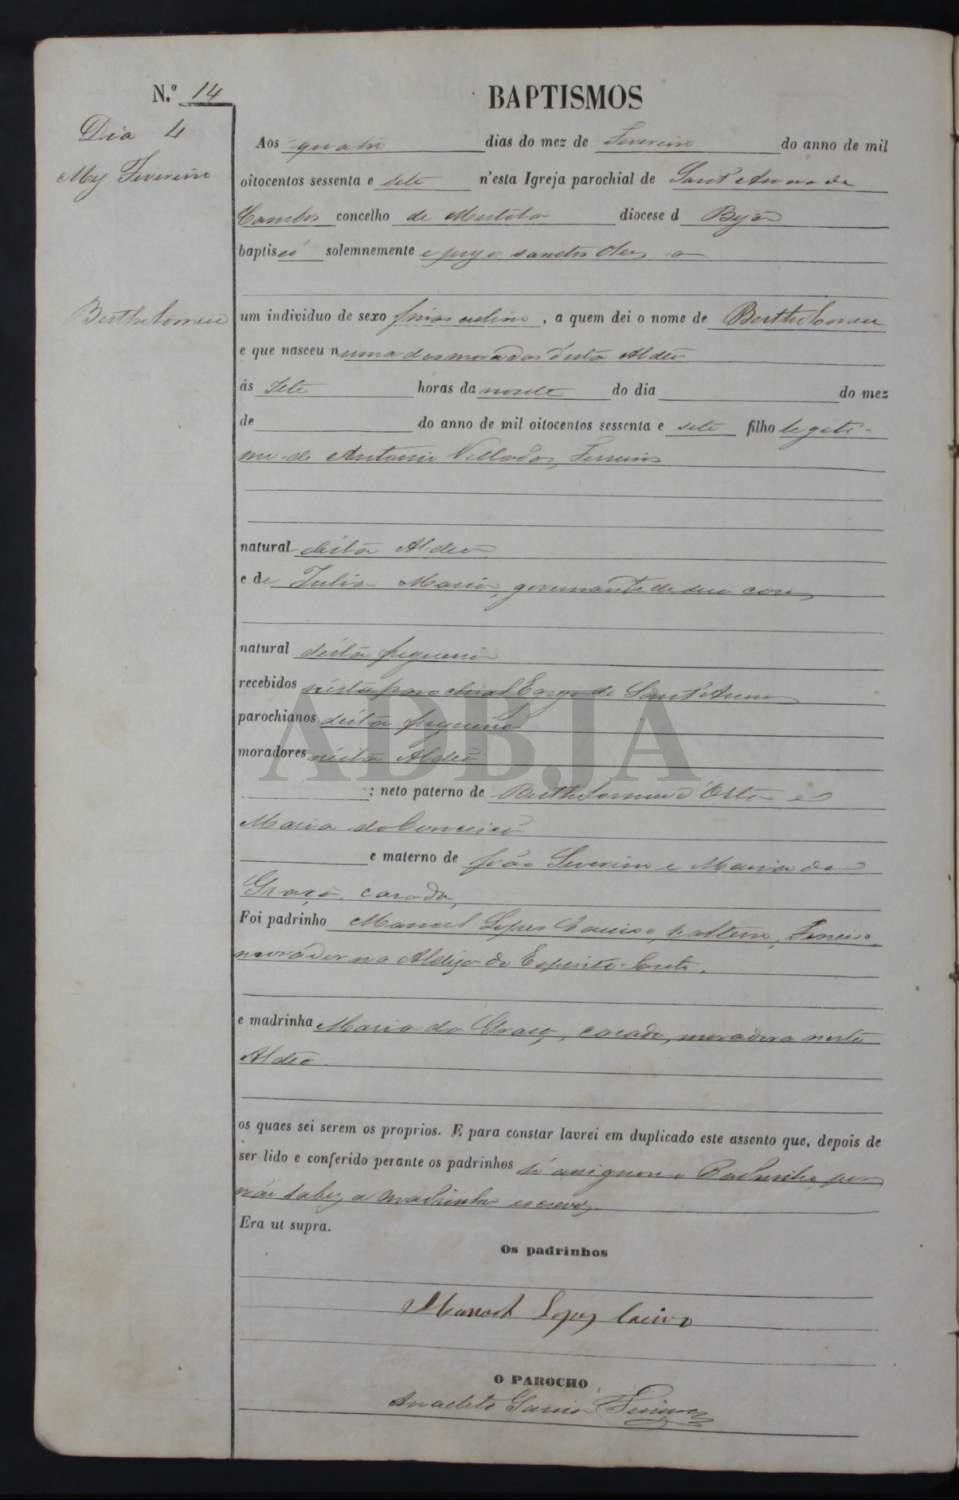 N.º 14
BAPTISMOS
Dia 4
Aos quatro dias do mez de Fevereiro do anno de mil
Mez Fevereiro
oitocentos sessenta e sete n'esta Igreja parochial de Sant'Anna de
Cambas concelho de Mertola diocese d Beja
baptisei solemnemente e puz os sanctos Oleos a
Berthulomeu
um individuo de sexo masculino, a quem dei o nome de Berthulomeu
e que nasceu numa das moradas d'esta Aldeã
ás sete horas da noute do dia do mez
de do anno de mil oitocentos sessenta e sete filho legiti-
mo de Antonio Ferreiro
natural desta Aldeã
e de Julia Maria, governante de sua casa
natural desta freguesia
recebidos nesta parochial Egreja de Sant'Anna
parochianos desta freguesia
moradores nesta Aldeã
ADBJA
: neto paterno de Berthulomeu d'Orta e
Maria da Conceicã
e materno de João Severino e Maria da
Graça, casada,
Foi padrinho Manoel Lopes solteiro,
morador na Aldeja do Espirito Santo.
e madrinha Maria da Graça, casada, moradora nesta
Aldeã.
os quaes sei serem os proprios. E para constar lavrei em duplicado este assento que, depois de
ser lido e conferido perante os padrinhos só assignou o Padrinho por
não saber a madrinha escrever.
Era ut supra.
Os padrinhos
Manoel Lopes
O PAROCHO
Anacleto Garcia